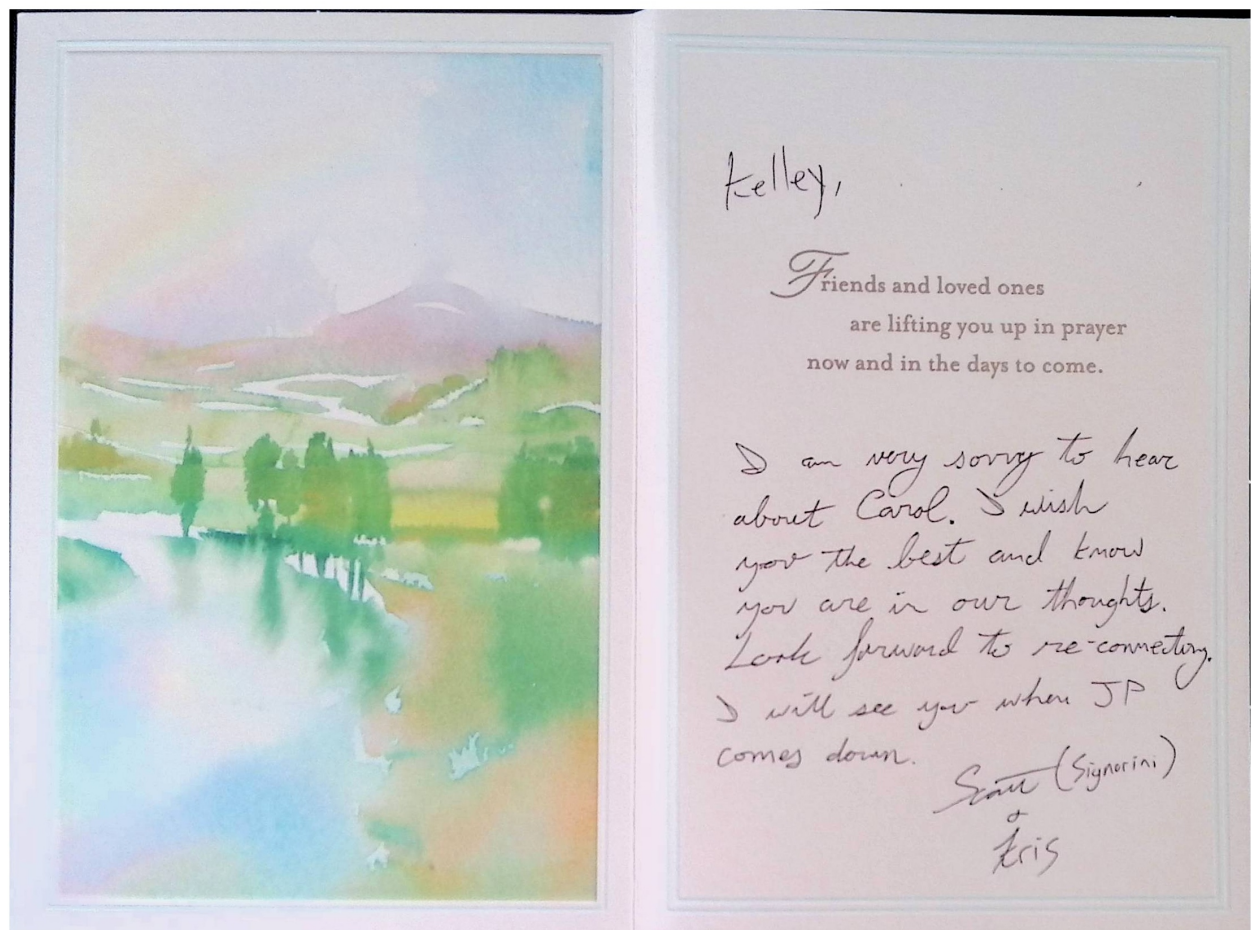 Kelley,
Friends and loved ones
are lifting you up in prayer
now and in the days to come.
I am very sorry to hear
about Carol. I wish
you the best and know
you are in our thoughts.
Look forward to re-connecting.
I will see you when JP
comes down.
Scott (Signorini)
&
Kris